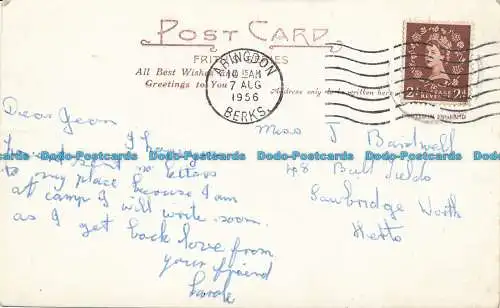 POST CARD
FRITH'S SERIES
All Best Wishes and
Greetings to You
Address only to be written here
ABINGDON
10 15 AM
7 AUG
1956
BERKS.
POSTAGE REVENUE
2d 2d
Dear Jean
I have
to my place
at camp I will write soon.
as I get back love from
your friend
Carole
Miss J Bardwell
48 Bullfields
Sawbridge Worth
Herts
Dodo-Postcards Dodo-Postcards Dodo-Postcards Dodo-Postcards Dodo-Postcards